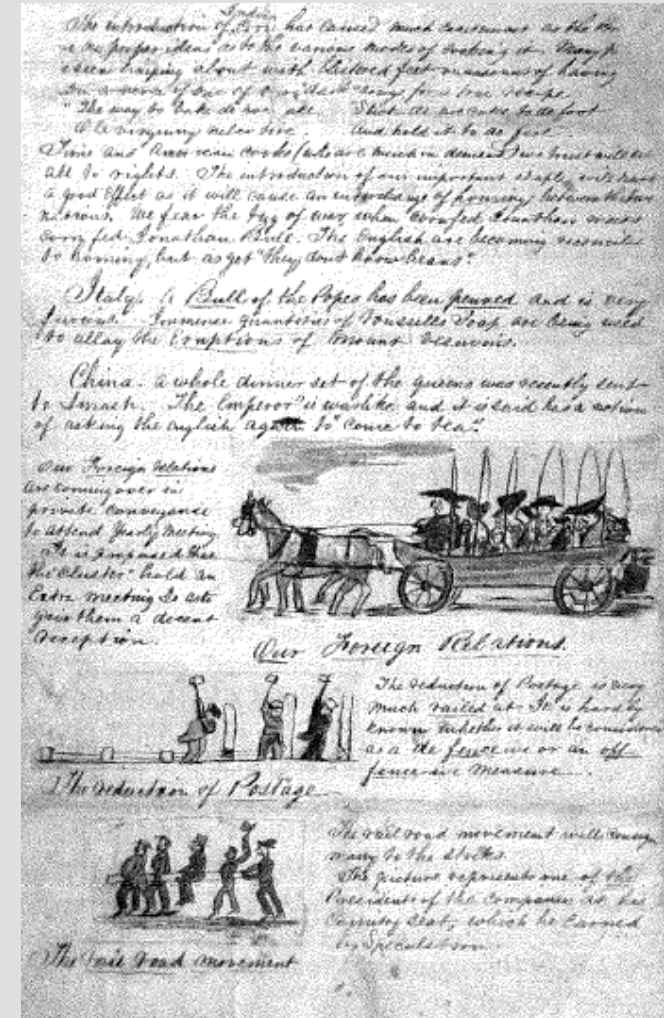 Indian
The introduction of Corn has caused much excitement as the
ve no proper ideas as to the various modes of cooking it. Many
seen limping about with blistered feet in consequence of having
"The way to bake de hoe cake
Ole Virginny never tire.
and hold it to de foot
Time and American cooks (who are much in demand) we trust will set
all to rights. The introduction of our important staple, will have
a good effect as it will cause an interchange of
We fear the tug of war when cornfed Jonathan meets
corn fed Jonathan Bull. The English are becoming reconciled
to hominy, but as yet "they dont know beans".
Italy. A Bull of the Popes has been penned and is very
furious. Immense quantities of Soap are being used
to allay the Eruptions of Mount Vesuvius.
China. A whole dinner set of the queens was recently sent
to smash. The Emperor is warlike and it is said has a notion
of asking the english again to "come to tea".
Our Foreign relations
are coming over in
private conveyance
to attend Yearly Meeting
It is proposed that
the "Cluster" hold an
Extra meeting to
give them a decent
reception.
Our Foreign Relations.
The reduction of Postage is very
much railed at. It is hardly
known whether it will be considered
as a de fence ive or an off
fence ive measure.
The reduction of Postage
The rail road movement will consign
many to the stocks.
The picture represents one of the
Presidents of the companies at his
Country Seat, which he earned
by Speculation.
The rail road movement